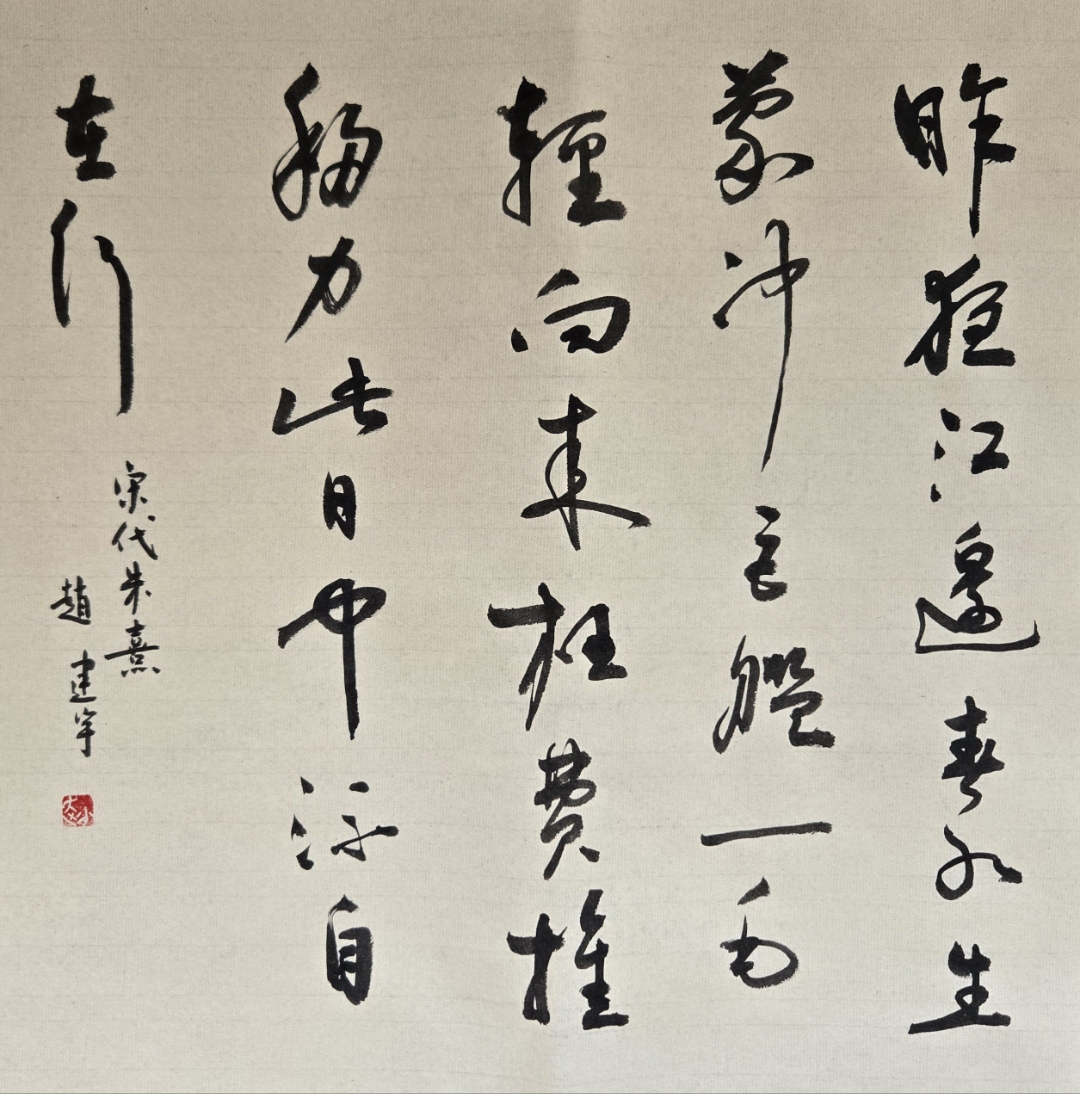 昨夜江邊春水生
蒙冲巨艦一毛
輕向来枉費推
移力此日中流自
在行
宋代朱熹
趙建宇